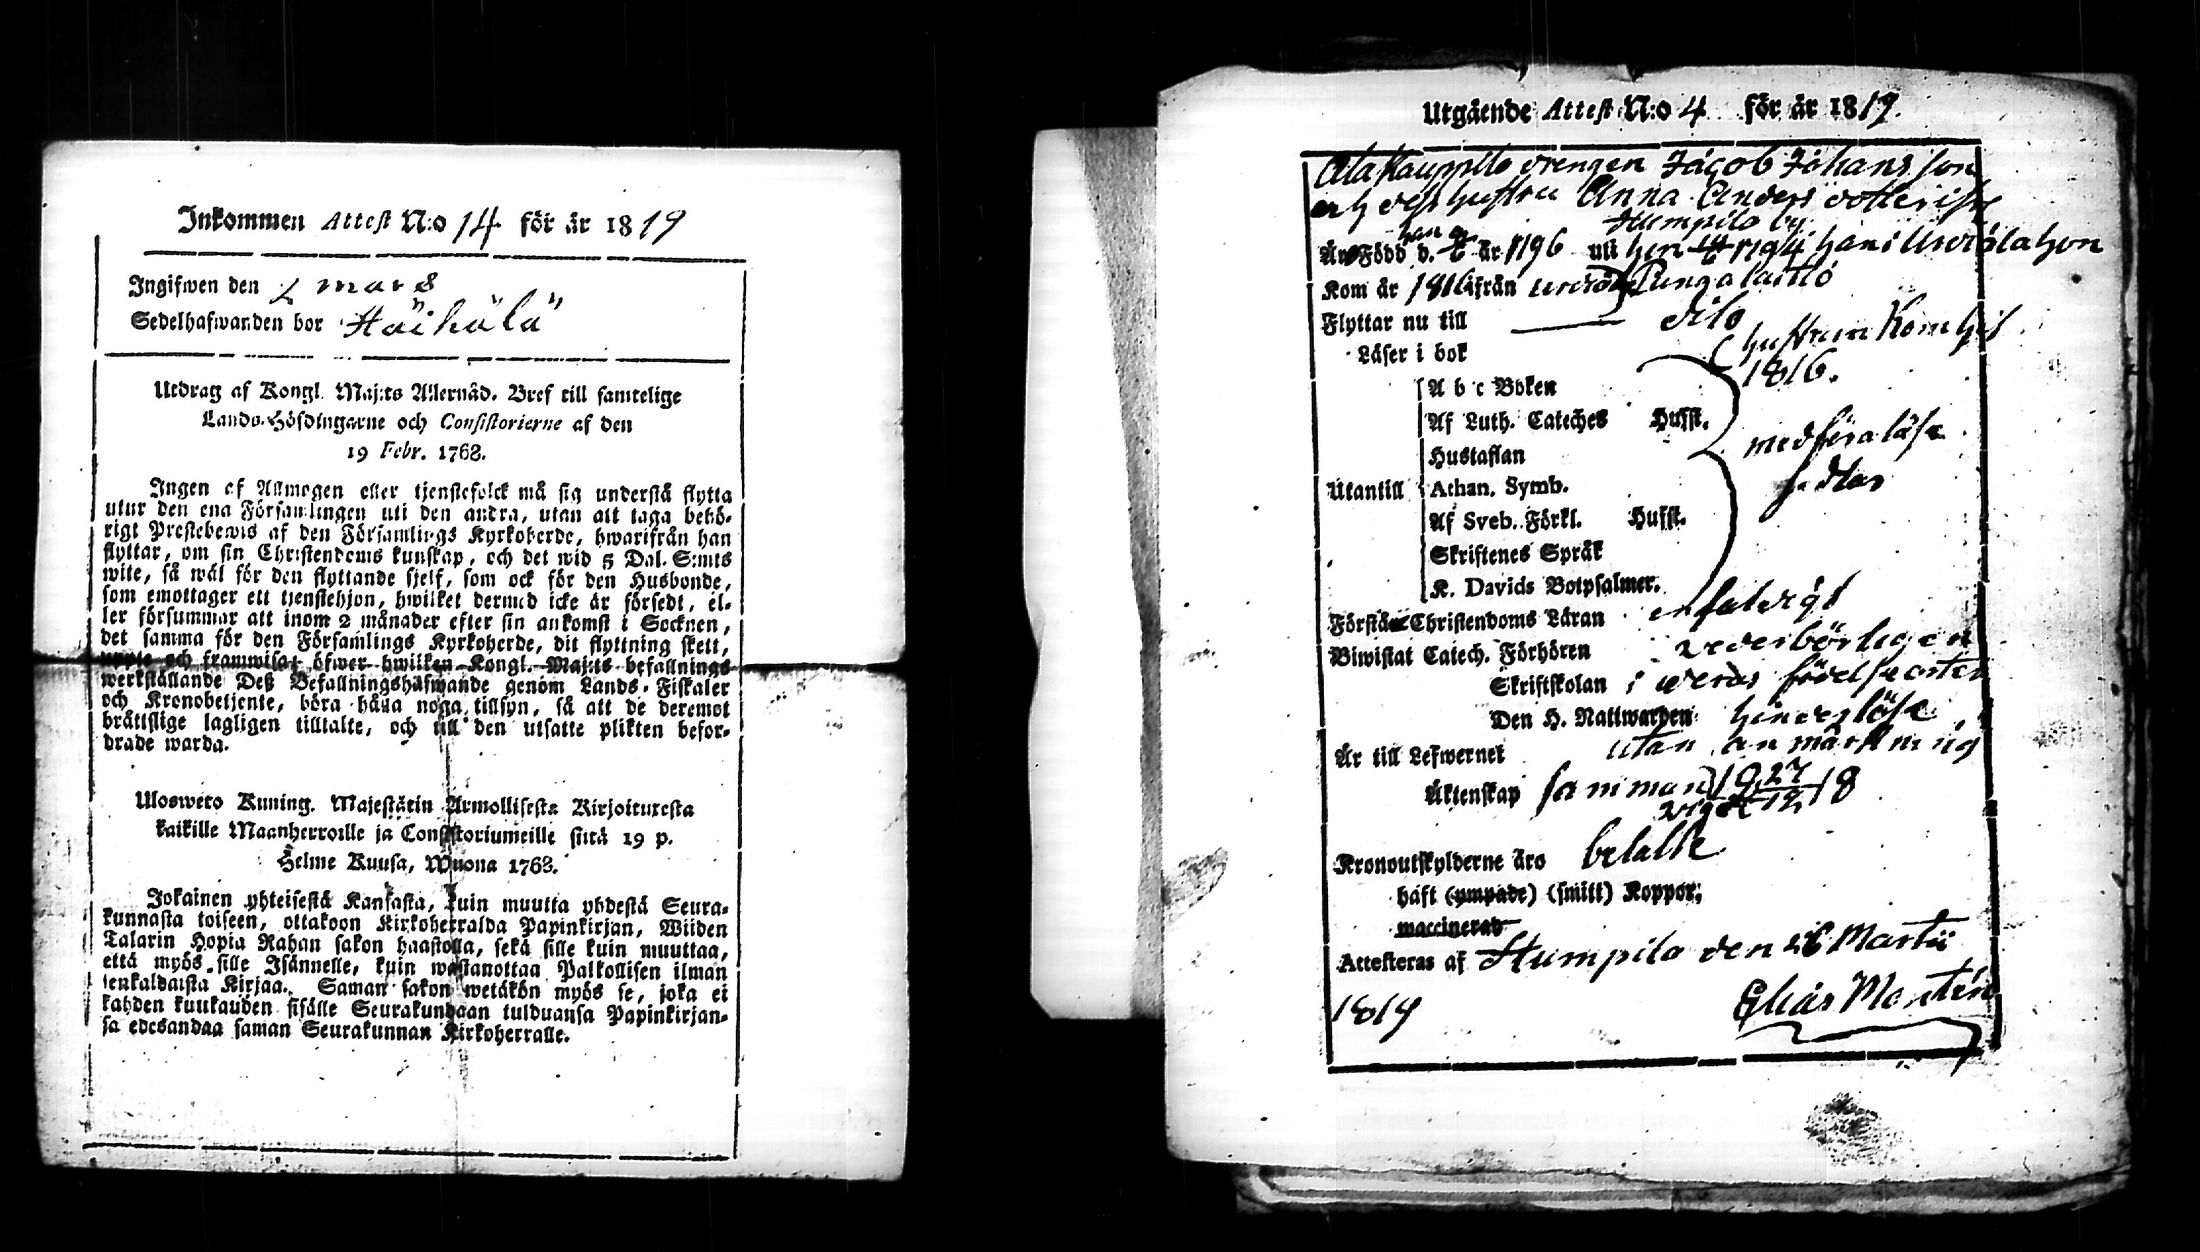 Inkommen Attest N:o 14 för år 1819
Ingifwen den 2 mars
Sedelhafwanden bor Häihälä
Utdrag af Kongl. Maj:ts Allernåd. Bref till samtelige
Lands-Höfdingarne och Consistorierne af den
19 Febr. 1763.
Ingen af Allmogen eller tjenstefolck må sig understå flytta
utur den ena Församlingen uti den andra, utan att taga behö-
rigt Prestebewis af den Församlings Kyrkoherde, hwarifrån han
flyttar, om sin Christendoms kunskap, och det wid 5 Dal. S:mts
wite, så wäl för den flyttande sjelf, som ock för den Husbonde,
som emottager ett tjenstehjon, hwilket dermed icke är försedt, el-
ler försummar att inom 2 månader efter sin ankomst i Socknen,
det samma för den Församlings Kyrkoherde, dit flyttning skett,
uppte och framwisa; öfwer hwilken Kongl. Maj:ts befallnings
werkställande Deß Befallningshafwande genom Lands-Fiskaler
och Kronobetjente, böra hålla noga tillsyn, så att de deremot
bråttslige lagligen tilltalte, och till den utsatte plikten befor-
drade warda.
Ulosweto Kuning. Majestätin Armollisesta Kirjoituxesta
kaikille Maanherroille ja Consistoriumeille siitä 19 p.
Helme Kuusa, Wuona 1763.
Jokainen yhteisestä Kansasta, kuin muutta yhdestä Seura-
kunnasta toiseen, ottakoon Kirkoherralda Papinkirjan, Wiiden
Talarin Hopia Rahan sakon haastolla, sekä sille kuin muuttaa,
että myös sille Isännelle, kuin wastanottaa Palkollisen ilman
senkaldaista Kirjaa. Saman sakon wetäkön myös se, joka ei
kahden kuukauden sisälle Seurakundaan tulduansa Papinkirjan-
sa edesandaa saman Seurakunnan Kirkoherralle.
Utgående Attest N:o 4 för år 1819.
Ala Kauppila drengen Jacob Johansson
och dess hustru Anna Andersdotter ifrån
Humpila by
Äro Född d. år 1796 uti hon 1794 han i Urdiala hon
Kom år 1816 ifrån Urdiala Punga
Flyttar nu till dito
Läser i bok hustrun kom hit
1816.
A b c Boken
Af Luth. Cateches Hufst.
Hustaflan
Utantill Athan. Symb.
Af Sveb. Förkl. Hufst.
Skriftenes Språk
K. Davids Botpsalmer.
medföra läse
sedlar
Förstå Christendoms Läran enfaldigt
Biwistat Catech. Förhören vederbörligen
Skriftskolan i deras födelseorter
Den H. Nattwarden hinderslöse
Är till Lefwernet utan anmärkning
Äktenskap samman
vigde 18 27/12 18
Kronoutskylderne äro betalte
haft (ympade) (smitt) Koppor;
waccinerad
Attesteras af Humpila den 26 Martii
1819
Elias Montén